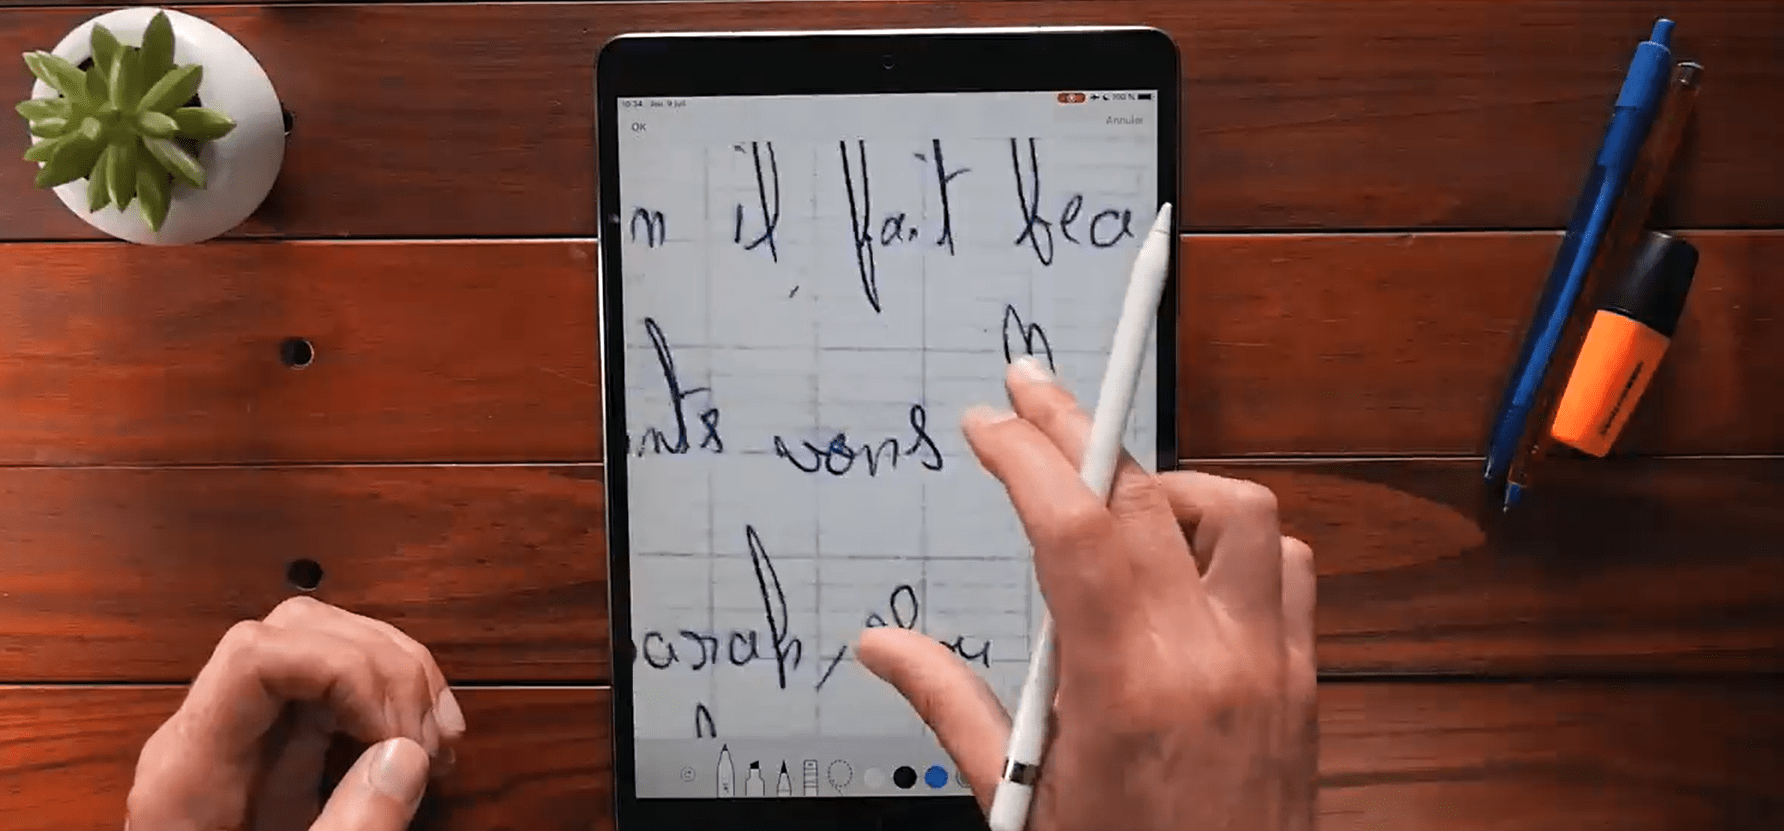 10:34 Jeu. 9 juil. 100 %
OK Annuler
n il fait bea
nts vons
arah,
n